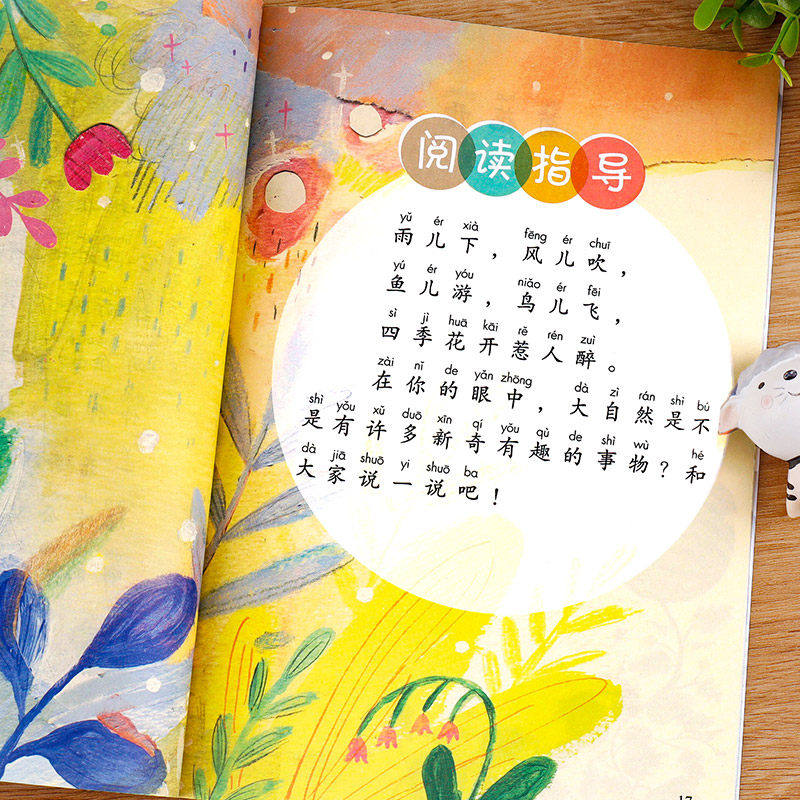 阅读指导
yǔ ér xià fēng ér chuī
雨儿下，风儿吹，
yú ér yóu niǎo ér fēi
鱼儿游，鸟儿飞，
sì jì huā kāi rě rén zuì
四季花开惹人醉。
zài nǐ de yǎn zhōng dà zì rán shì bú
在你的眼中，大自然是不
shì yǒu xǔ duō xīn qí yǒu qù de shì wù hé
是有许多新奇有趣的事物？和
dà jiā shuō yi shuō ba
大家说一说吧！